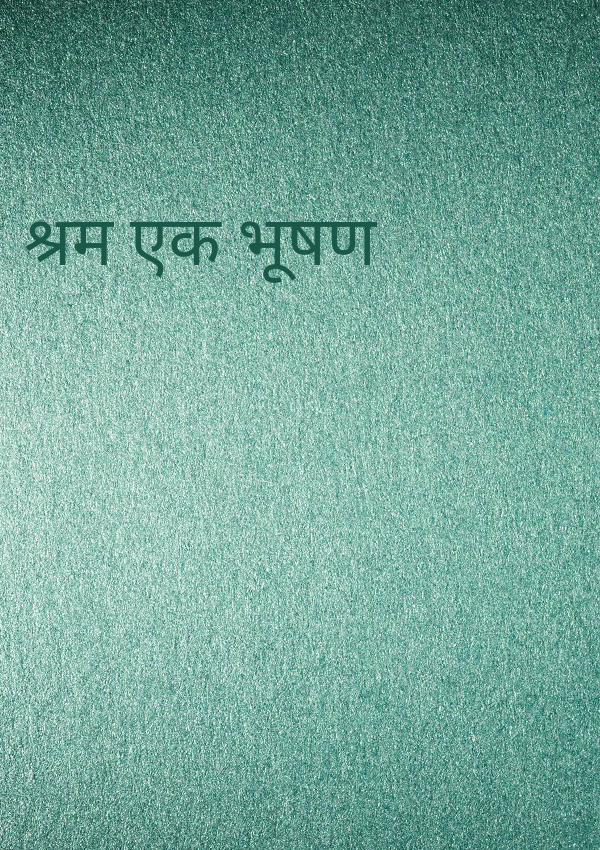 श्रम एक भूषण